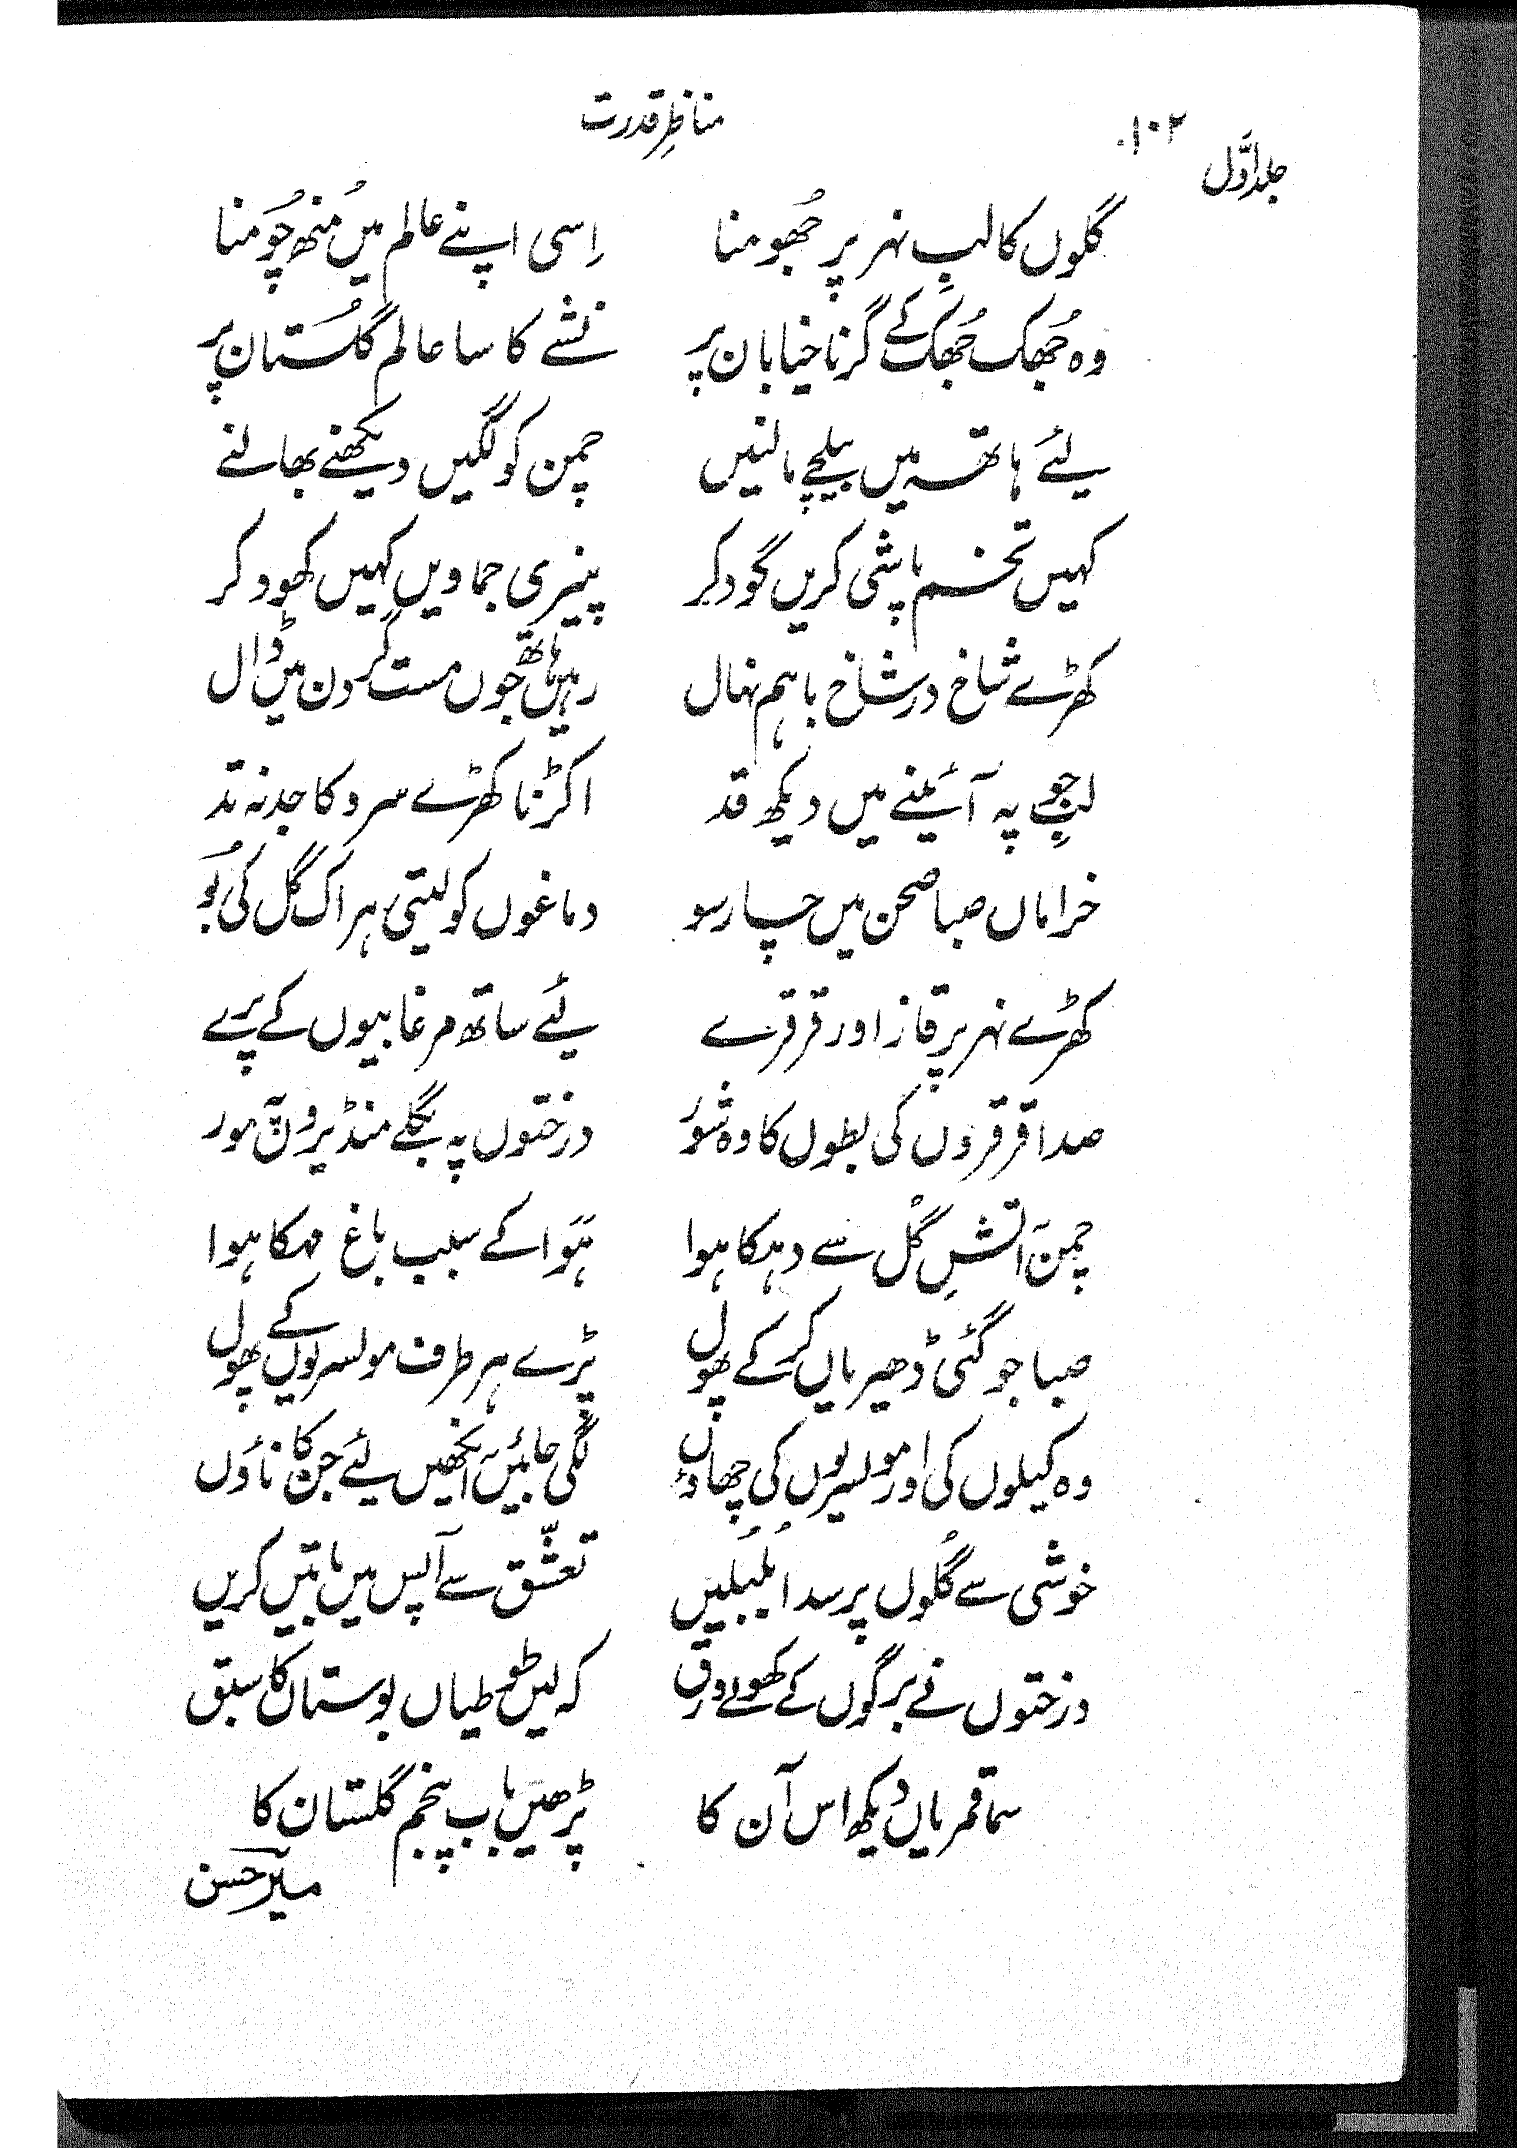 جلد اوّل ۱۰۲ مناظرِ قدرت
گلوں کا لبِ نہر پر جُھومنا اِسی اپنے عالم میں مُنھ چُومنا
وہ جُھک جُھک کے گرنا خیابان پر نشے کا سا عالم گلُستان پر
لئے ہاتھ میں بیلچے مالنیں چمن کو لگیں دیکھنے بھالنے
کہیں تخم پاشی کریں گود کر پنیری جماویں کہیں کھود کر
کھڑے شاخ در شاخ باہم نہال رہیں ہاتھ جوں مست گردن میں ڈال
لبِ جو پہ آئینے میں دیکھ قد اکڑنا کھڑے سرو کا جد نہ تد
خراماں صبا صحن میں چار سو دماغوں کو لیتی ہر اک گل کی بُو
کھڑے نہر پر قاز اور قرقرے لئے ساتھ مرغابیوں کے پرے
صدا قرقروں کی بطوں کا وہ شور درختوں پہ بگلے منڈیروں پہ مور
چمن آتشِ گُل سے دہکا ہوا ہَوا کے سبب باغ مہکا ہوا
صبا جو گئی ڈھیریاں کر کے پھول پڑے ہر طرف مولسریوں کے پھول
وہ کیلوں کی اور مولسریوں کی چھاؤں لگی جائیں آنکھیں لئے جن کا ناؤں
خوشی سے گُلوں پر سدا بُلبُلیں تعشّق سے آپس میں باتیں کریں
درختوں نے برگوں کے کھولے ورق کہ لیں طوطیاں بوستاں کا سبق
سما قمریاں دیکھ اس آن کا پڑھیں باب پنجم گلستان کا
میر حسن